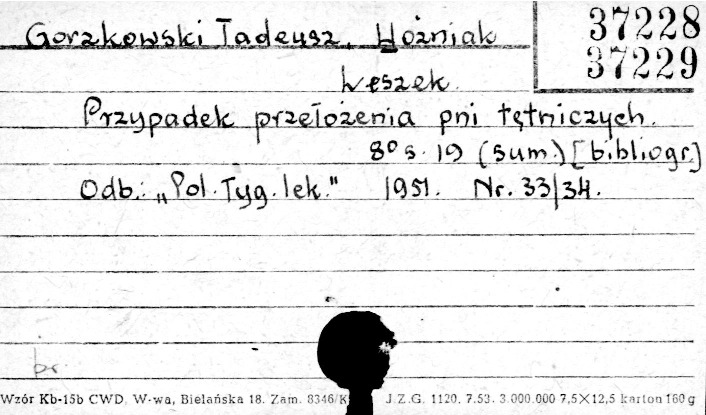 Gorzkowski Tadeusz, Woźniak
37228
37229
Leszek.
Przypadek przełożenia pni tętniczych.
8° s. 19 (sum.) [bibliogr.]
Odb.: „Pol. Tyg. lek." 1951. Nr. 33/34.
br.
Wzór Kb-15b CWD. W-wa, Bielańska 18. Zam. 8346/K J.Z.G. 1120. 7.53. 3.000.000 7,5×12,5 karton 160 g